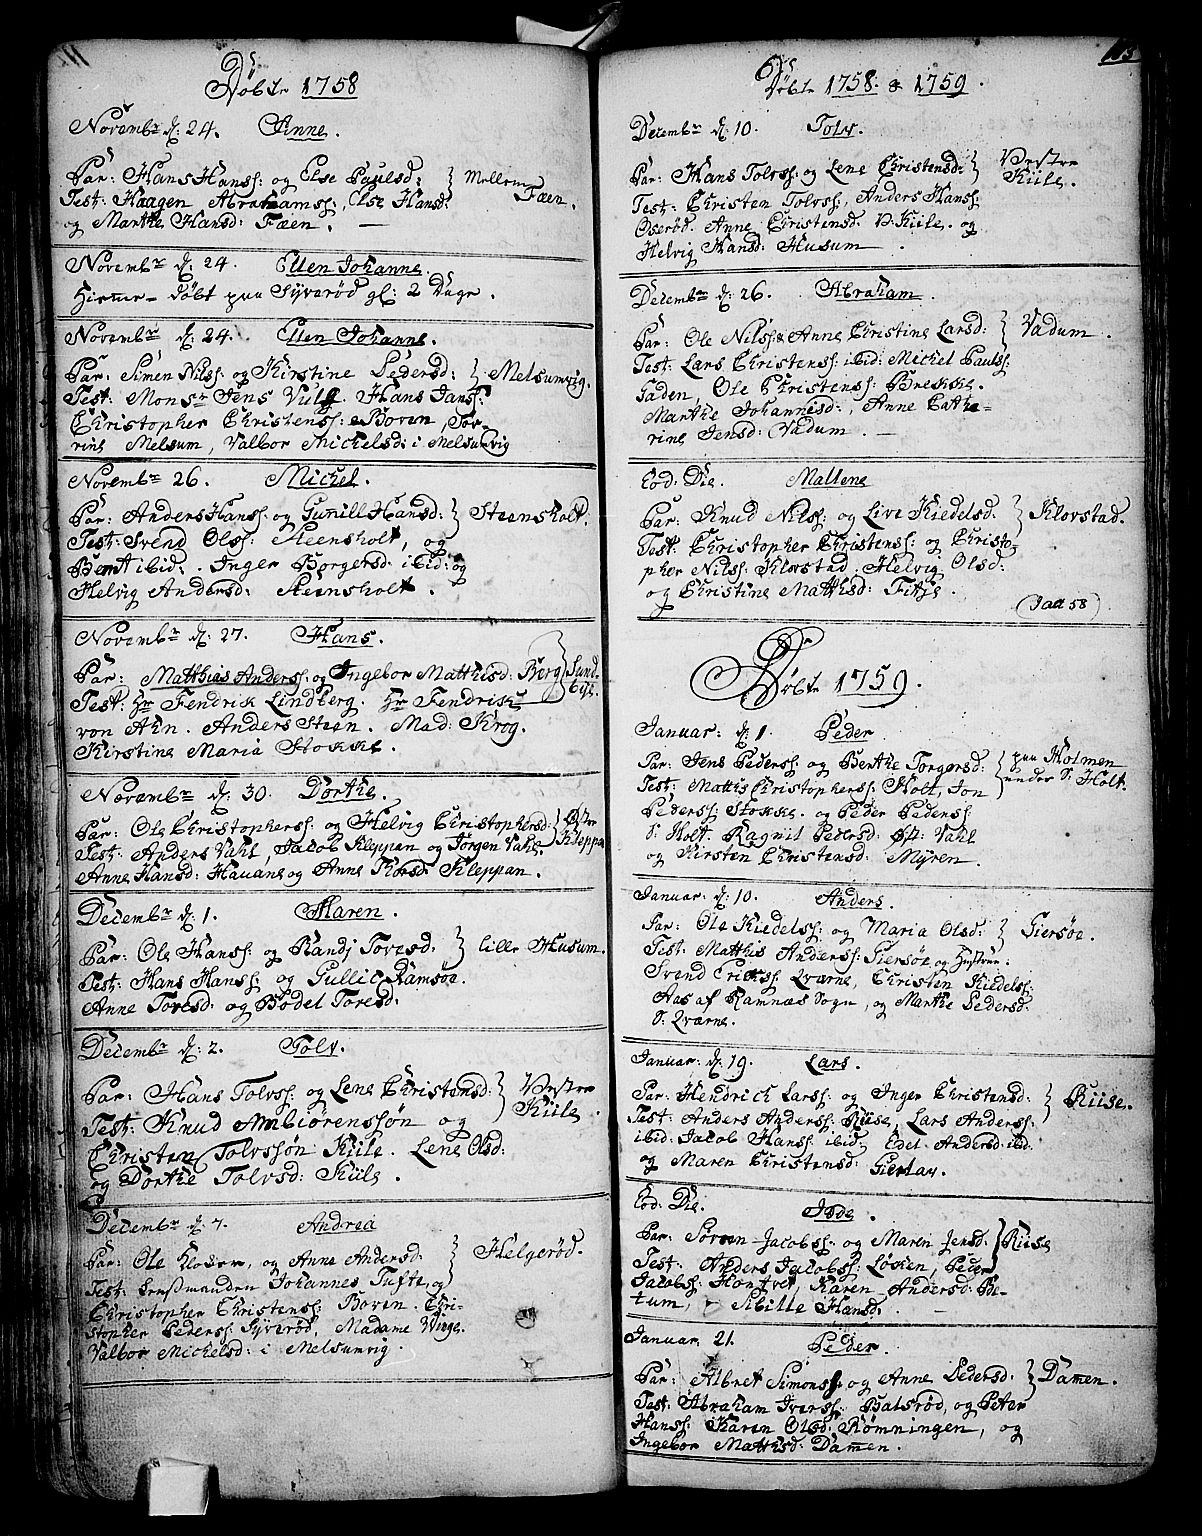 Døbte 1758
Novembr d: 24. Anne.
Par: Hans Hanss: og Else Paulsd: Mellem
Test: Haagen Abrahamss, Else Hansd: Fæen.
og Marthe Hansd: Fæen.
Novembr d: 24. Ellen Johanne.
Hiemme-døbt paa Syverød gl: 2 Dage.
Novembr d: 24. Ellen Johanne.
Par: Simen Nilss: og Kirstine Pedersd: Melsumvig.
Test: Monsr Jens Hans Janss:
Christopher Christenss: Boven, Tor-
rine Melsum, Valbor Michelsd: i Melsumvig
Novembr 26. Michel.
Par: Anders Hanss: og Gunill Hansd: Steensholt.
Test: Svend Olss: Steensholt, og
Berntt ibid:. Inger Borgersd: ibid: og
Helvig Andersd: Steensholt.
Novembr d: 27. Hans.
Par: Matthias Anderss: og Ingebor Matthisd: Borg Sund-
Test: Hr Fendrik Lindberg. Hr Fendrik bye.
von Ahn. Anders Steen. Mad: Krog.
Kirstine Maria Stokke.
Novembr d: 30. Dorthe.
Par: Ole Christopherss: og Helvig Christophersd: Østre
Test: Anders Vahl, Jacob Kleppan og Jørgen Vahl. Kleppan
Anne Hansd: Hauane og Anne Thoresd: Kleppan.
Decembr d: 1. Maren.
Par: Ole Hanss: og Randj Toresd: lille Husum.
Test: Hans Hanss: og Gullic Ramsøe.
Anne Toresd: og Bodel Toresd:
Decembr d: 2. Tolv.
Par: Hans Tolvss: og Lene Christensd: Vestre
Test: Knud Ambiørenssøn og Kiile.
Christen Tolvssøn Kiile. Lene Olsd:
og Dorthe Tolvsd: Kiile.
Decembr d: 7. Andrea
Par: Ole Klokker, og Anne Andersd: Helgerød.
Test: Lensmanden Johannes Tufte, og
Christopher Christenss: Boven. Chri-
stopher Pederss: Syverød, Madame Winge.
Valbor Michelsd: i Melsumvig.
113
Døbte 1758. & 1759.
Decembr d: 10. Tolv.
Par: Hans Tolvss: og Lene Christensd: Vestre
Test: Christen Tolvss:, Anders Hanss: Kiile.
Oserød. Anne Christensd: V: Kiile. og
Helvig Hansd: Husum.
Decembr d: 26. Abraham.
Par: Ole Nilss: & Anne Christine Larsd: Vadum.
Test: Lars Christenss: ibid: Michel Paulss:
Gaden, Ole Christenss: Brekke.
Marthe Johannisd:, Anne Cathe-
rine Jensd: Vadum.
Eod: Die. Mallene
Par: Knud Nilss: og Live Kiedelsd. Klovstad.
Test: Christopher Christenss: og Christo-
pher Nilss: Klovstad, Helvig Olsd:
og Christine Matthisd: Fitje.
(Jatt 58)
Døbte 1759.
Januar: d: 1. Peder
Par: Jens Pederss: og Berthe Torgersd: paa Holmen
Test: Matthis Christopherss: Holt, Jon under S: Holt.
Pederss: Stokke. og Peder Pederss:
S: Holt. Ragnil Pedersd: Øst: Vahl
og Kirsten Christensd: Myren.
Januar d: 10. Anders.
Par: Ole Kiedelss: og Maria Olsd: Giersøe.
Test: Matthis Anderss: Giersøe og Hustrue:
Svend Erikss: Qværne, Christen Kiedelss:
Aas af Ramnæs Sogn, og Marthe Pedersd:
S: Qværne.
Januar d: 19. Lars.
Par: Hendrich Larss: og Inger Christensd: Riise.
Test: Anders Anderss: Riise, Lars Anderss:
ibid: Jacob Hanss: ibid: Edel Andersd: ibid:
og Maren Christensd: Giertav.
Eod: Die. Jode.
Par: Sören Jacobss: og Maren Jensd: Riise
Test: Anders Jacobss: Løken, Peder
Jacobss: Karen Andersd: Be-
tum, Sibille Hansd:
Januar 21. Peder.
Par: Albret Simonss: og Anne Pedersd: Damen.
Test: Abraham Iverss: Balsrød, og Peter
Hanss: Karen Olsd: Rømningen, og
Ingebor Matthisd: Damen.